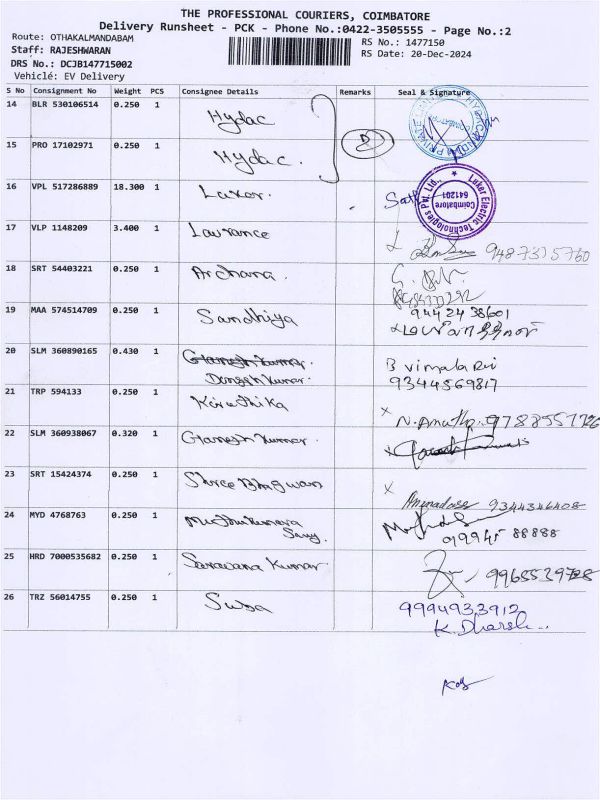 THE PROFESSIONAL COURIERS, COIMBATORE
Delivery Runsheet - PCK - Phone No.:0422-3505555 - Page No.:2
Route: OTHAKALMANDABAM
RS No.: 1477150
Staff: RAJESHWARAN
RS Date: 20-Dec-2024
DRS No.: DCJB147715002
Vehiclé: EV Delivery
S No Consignment No Weight PCS Consignee Details Remarks Seal & Signature
14 BLR 530106514 0.250 1 Hydac
15 PRO 17102971 0.250 1 Hydac.
16 VPL 517286889 18.300 1 Luker. Luker Electric Technologies Pvt. Ltd., Coimbatore 641201
17 VLP 1148209 3.400 1 Lawrance
18 SRT 54403221 0.250 1 Archana.
19 MAA 574514709 0.250 1 Sandhiya 9442438601
20 SLM 360890165 0.430 1 Ganesh Kumar. B Vimala
9344569817
21 TRP 594133 0.250 1 Kiruthika
22 SLM 360938067 0.320 1 Ganesh Kumar.
23 SRT 15424374 0.250 1 Shree Bhagwan 9344346408
24 MYD 4768763 0.250 1 Muthukumara
Samy.
25 HRD 7000535682 0.250 1 Saravana Kumar
26 TRZ 56014755 0.250 1 Susa 9994933912
K. Dharsh